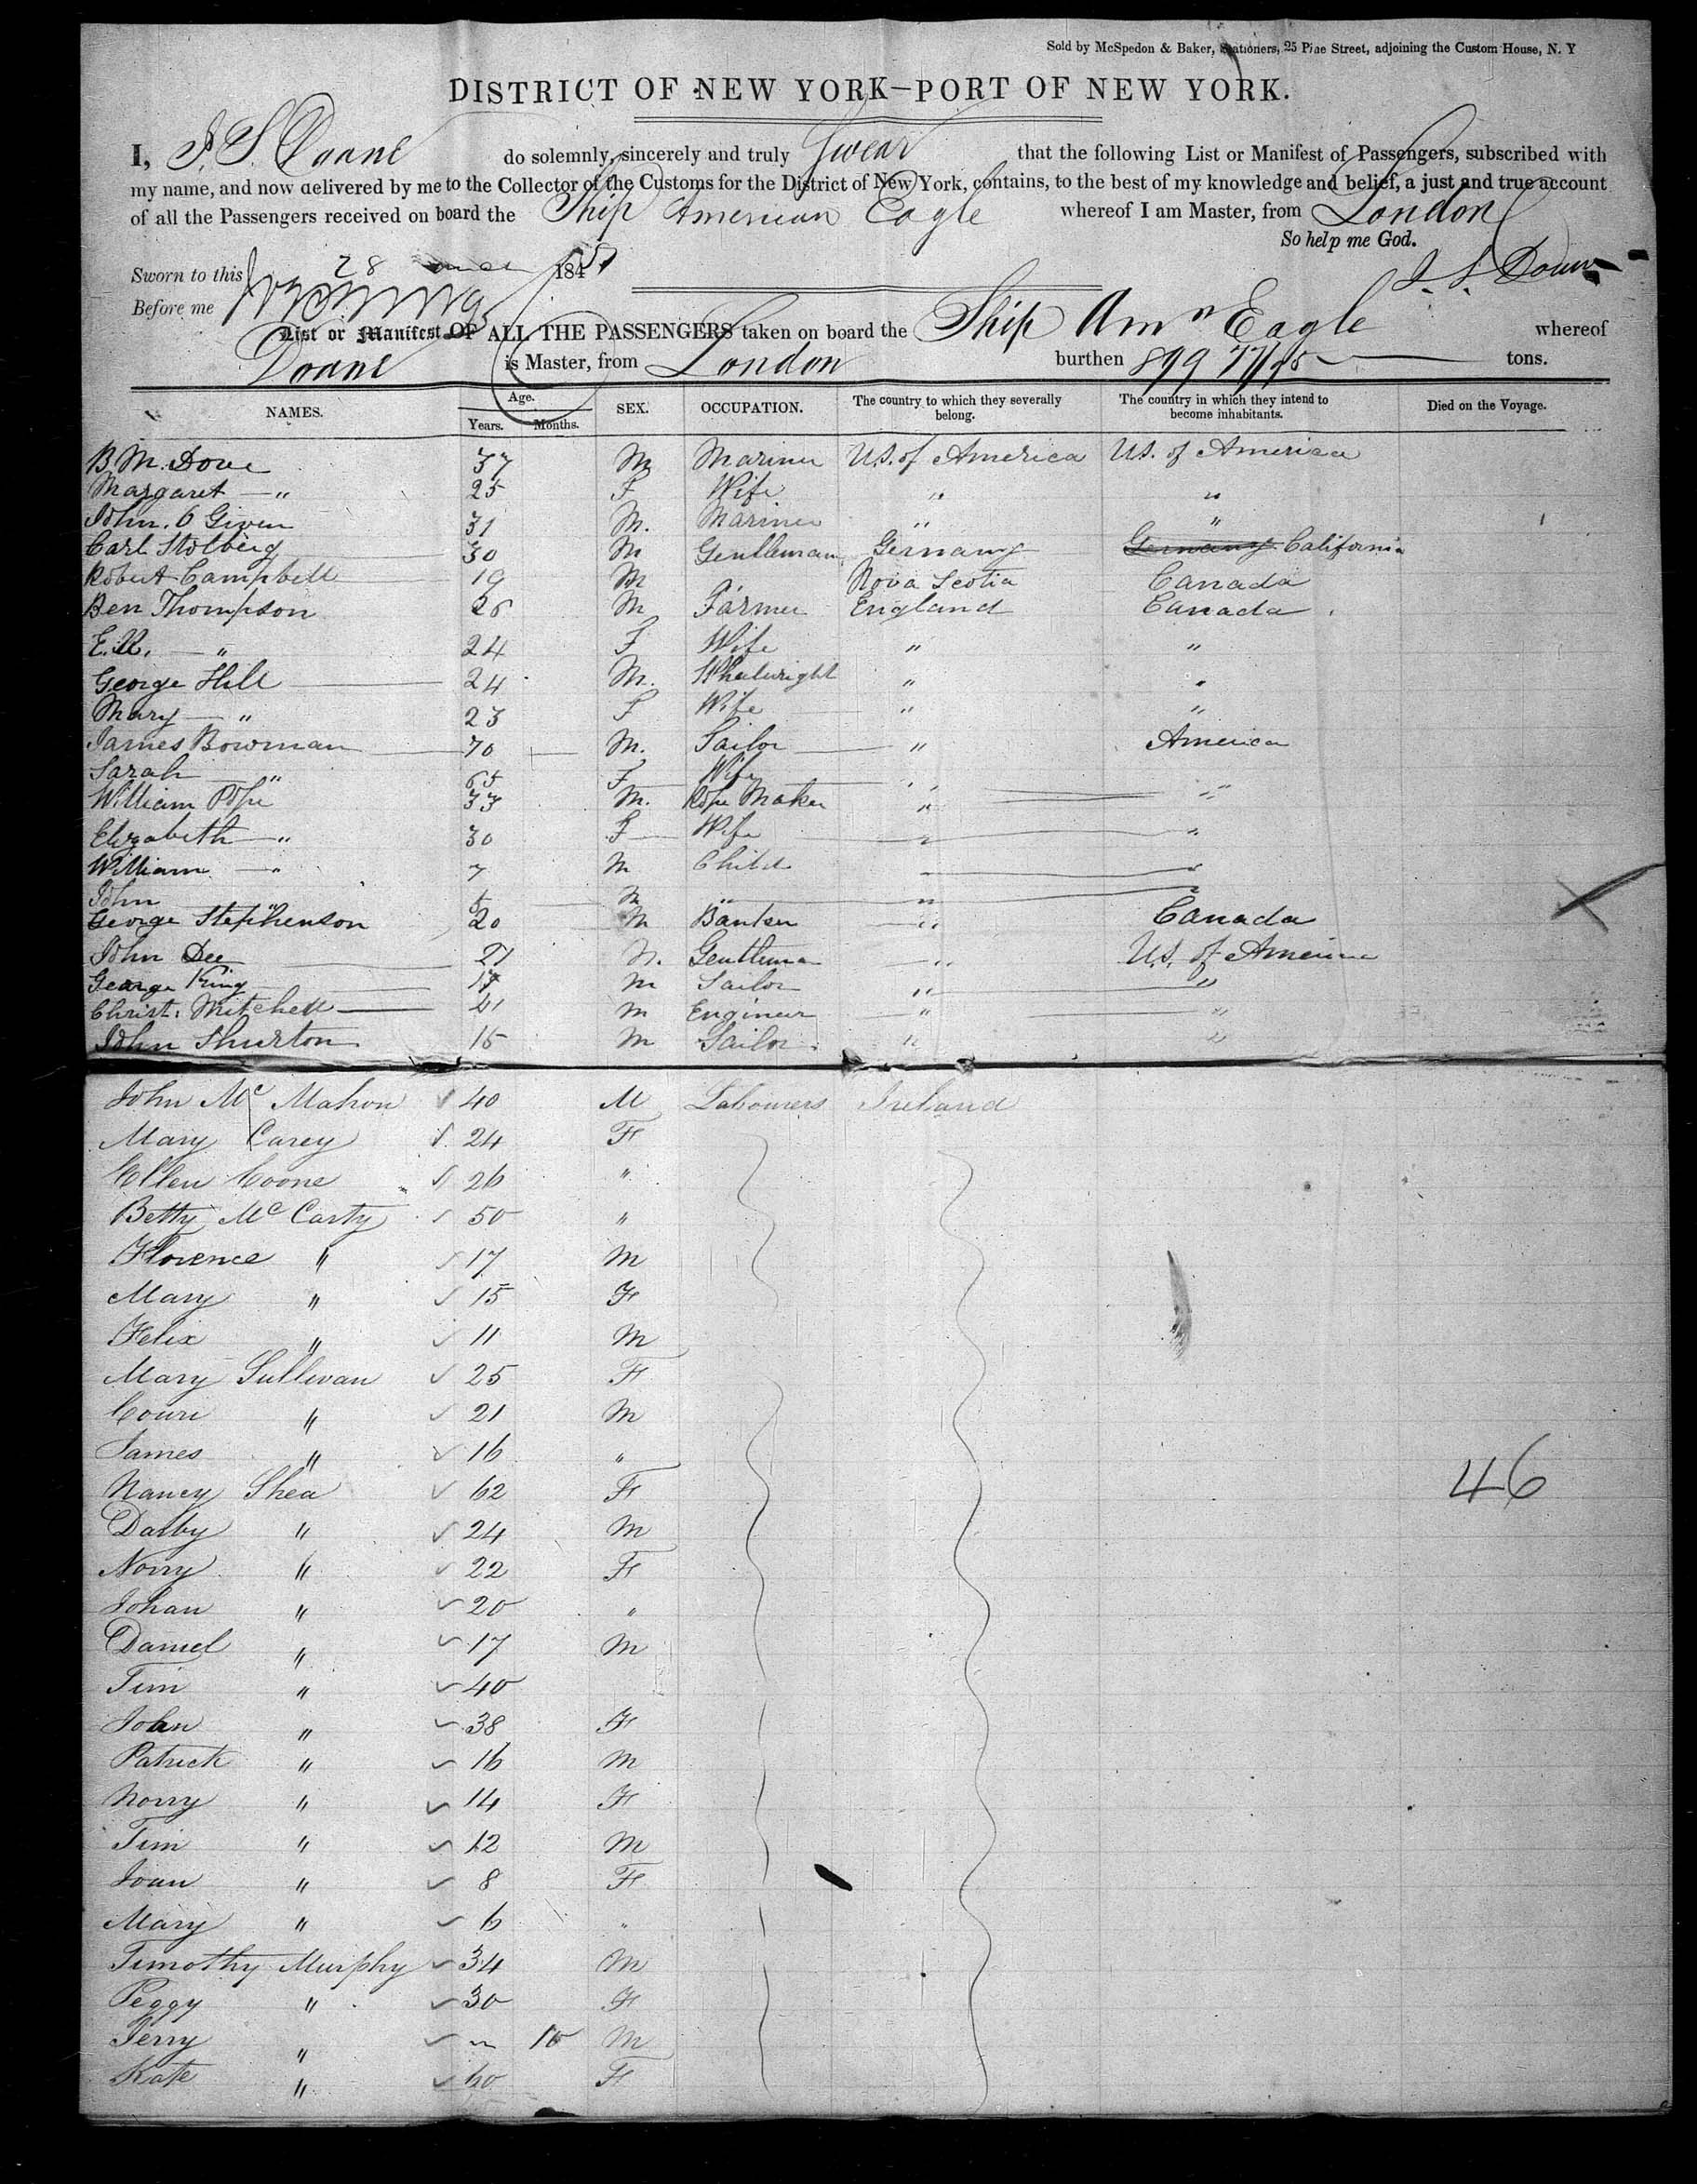 Sold by McSpedon & Baker, Stationers, 25 Pine Street, adjoining the Custom House, N. Y
DISTRICT OF NEW YORK—PORT OF NEW YORK.
I, J. S. Doane do solemnly, sincerely and truly Swear that the following List or Manifest of Passengers, subscribed with
my name, and now delivered by me to the Collector of the Customs for the District of New York, contains, to the best of my knowledge and belief, a just and true account
of all the Passengers received on board the Ship American Eagle whereof I am Master, from London
So help me God.
Sworn to this 28 184
Before me
List or Manifest OF ALL THE PASSENGERS taken on board the Ship Amn Eagle whereof
Doane is Master, from London burthen 899 77/95 tons.
NAMES. Age. Years. Months. SEX. OCCUPATION. The country to which they severally belong. The country in which they intend to become inhabitants. Died on the Voyage.
B. M. Dove 37 M Mariner U.S. of America U.S. of America
Margaret — " 25 F Wife " "
John. O Given 31 M. Mariner " "
Carl Stolberg 30 M Gentleman Germany Germany California
Robert Campbell 19 M Nova Scotia Canada
Ben Thompson 26 M Farmer England Canada
E. R. — " 24 F Wife " "
George Hill 24 M. Whelwright " "
Mary — " 23 F Wife " "
James Bowman 70 M. Sailor " America
Sarah — " 65 F Wife " "
William Pope 33 M. Rope Maker " "
Elizabeth — " 30 F Wife " "
William — " 7 M Child " "
John " 5 M " " "
George Stephenson 20 M Banker " Canada
John Dee 21 M. Gentleman " U.S. of America
George King 17 M Sailor " "
Christ: Mitchell 41 M Engineer " "
John Shurton 15 M Sailor " "
John Mc Mahon 40 M Labourers Ireland
Mary Carey 24 F
Ellen Coone 26 "
Betty Mc Carty 50 "
Florence " 17 M
Mary " 15 F
Felix " 11 M
Mary Sullivan 25 F
" 21 M
James " 16 "
Nancy Shea 62 F
46
Darby " 24 M
Norry " 22 F
Johan " 20 "
Daniel " 17 M
Tim " 40
Johan " 38 F
Patrick " 16 M
Norry " 14 F
Tim " 12 M
Joan " 8 F
Mary " 6 "
Timothy Murphy 34 M
Peggy " 30 F
Jerry " " 10 M
Kate " 60 F